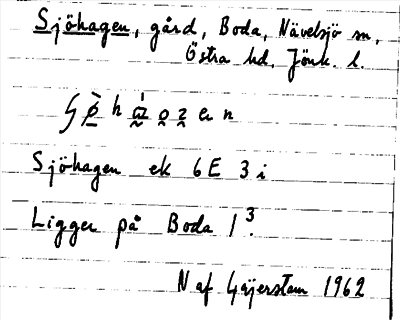 Sjöhagen, gård, Boda, Nävelsjö sn,
Östra hd, Jönk. l.
Sjöhagen ek 6E 3i
Ligger på Boda 1³.
N af Geijerstam 1962